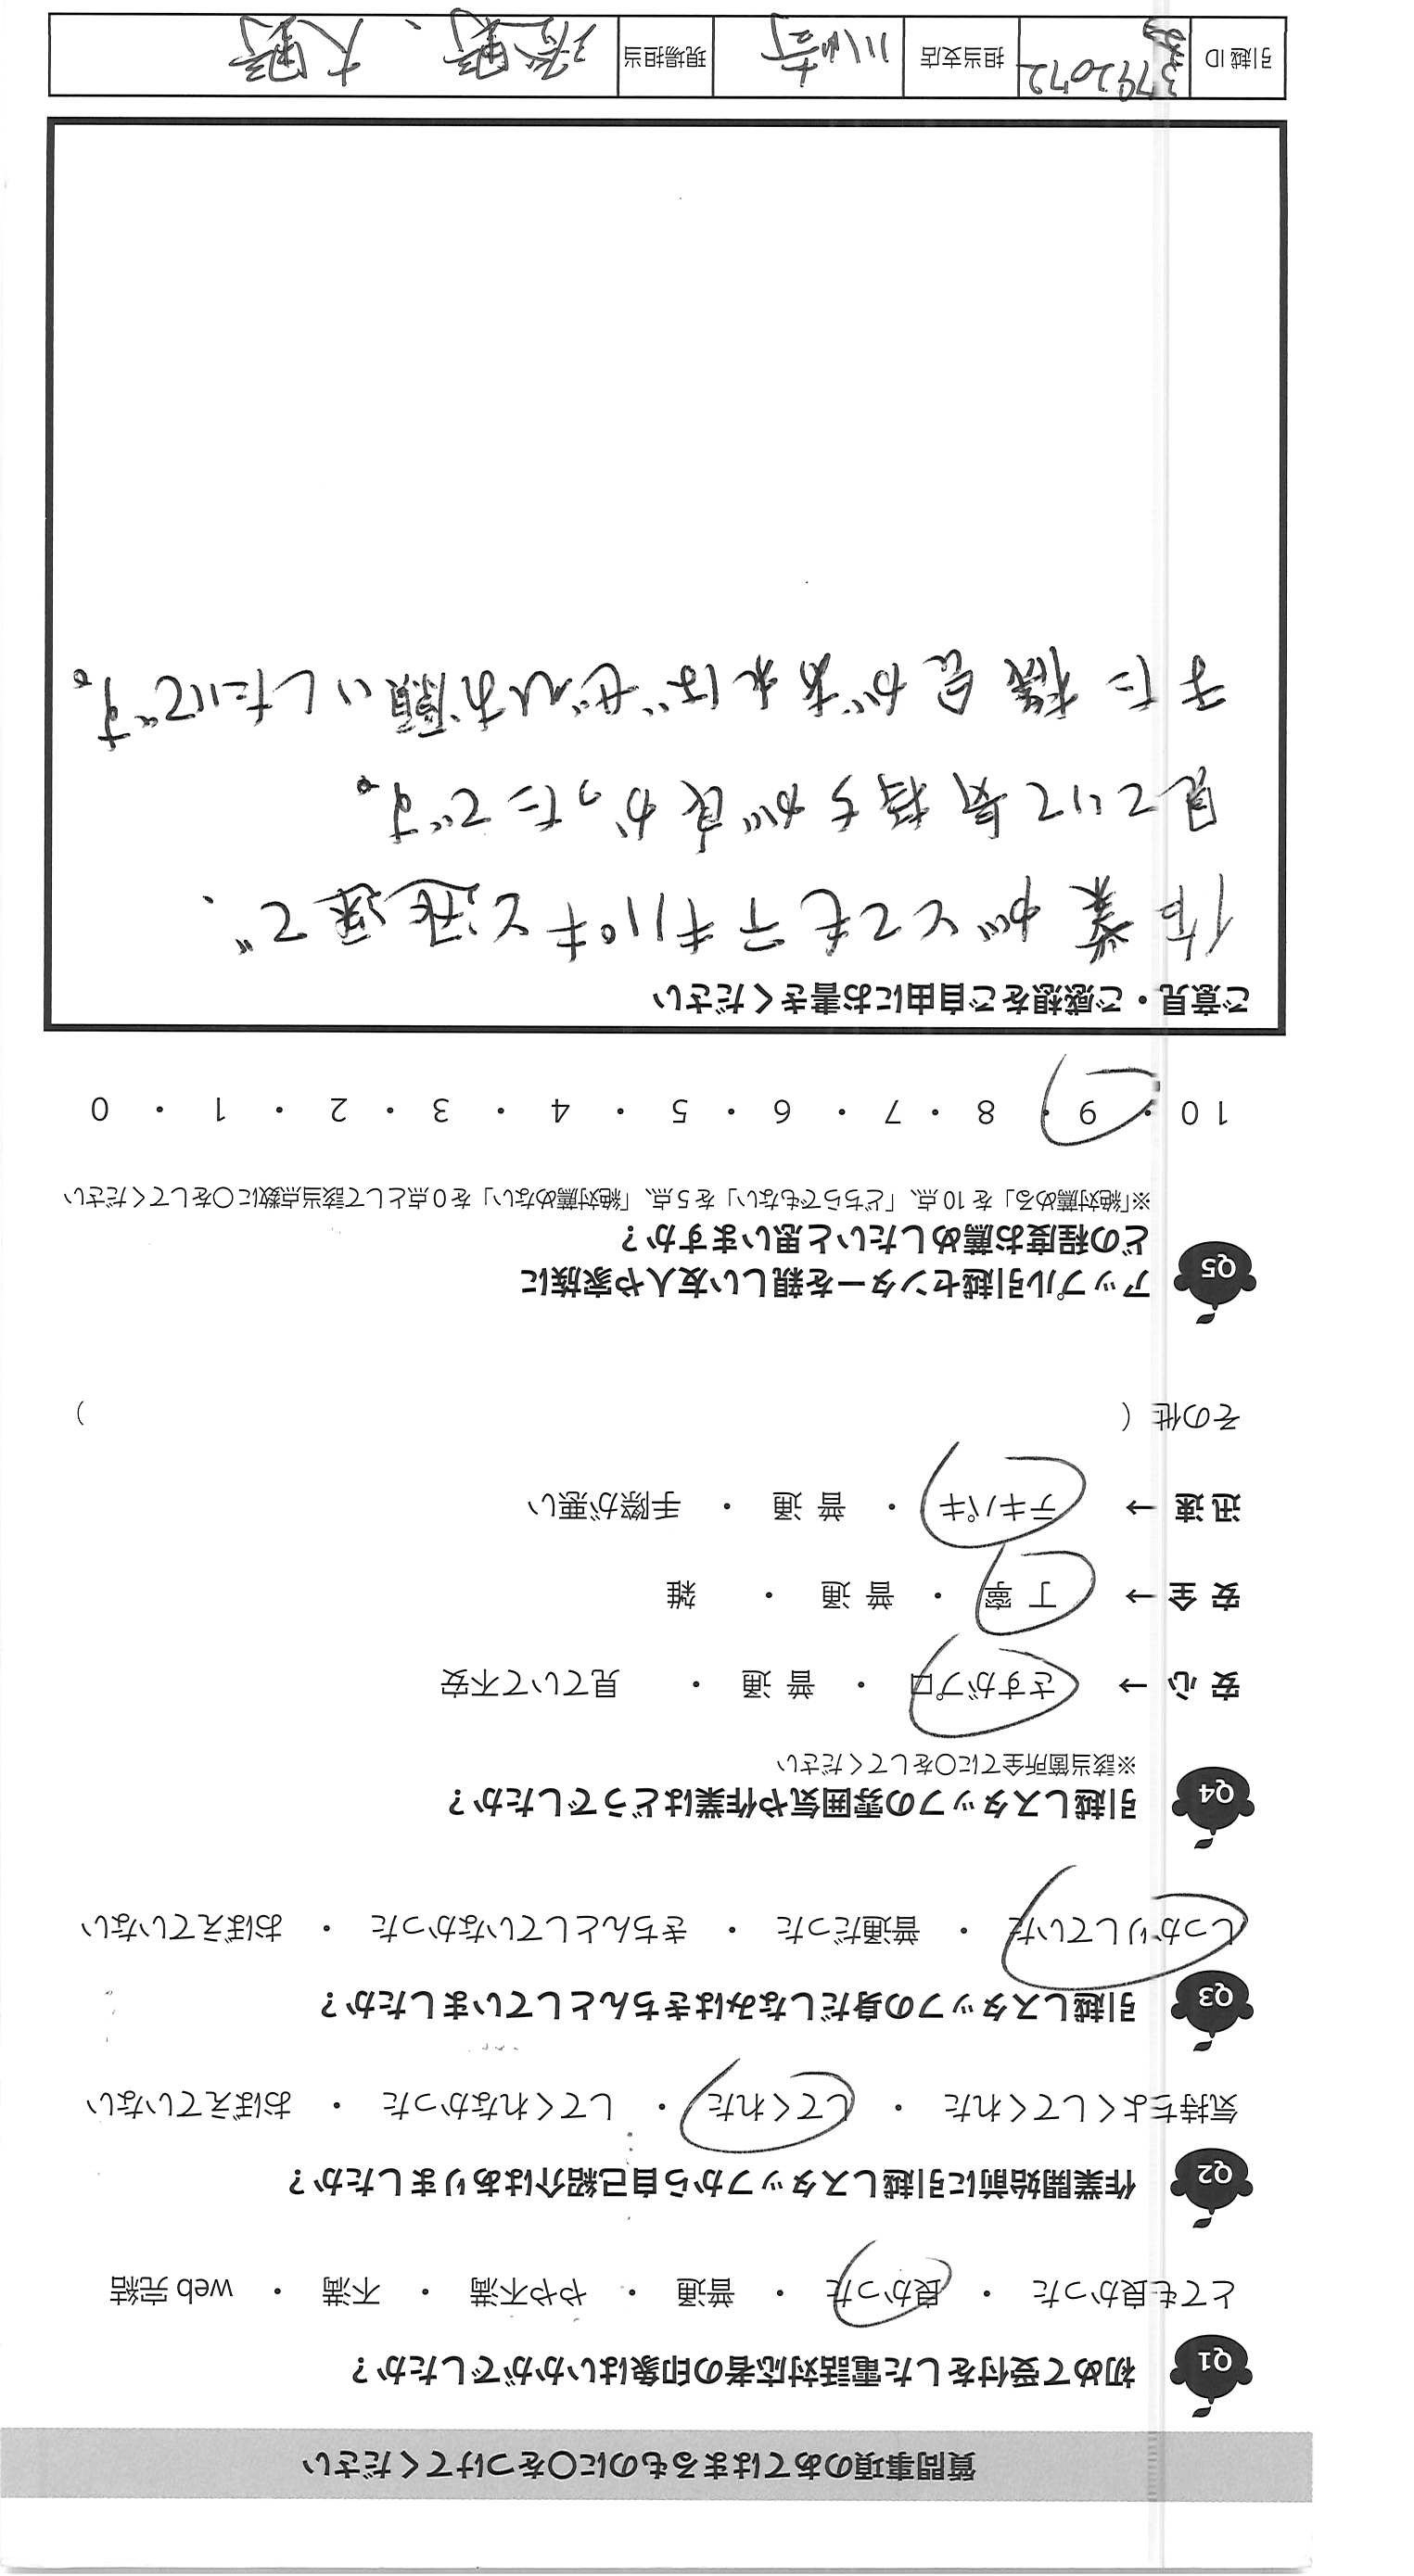 質問事項のあてはまるものに〇をつけてください
Q1 初めて受付をした電話対応者の印象はいかがでしたか？
とても良かった ・ 良かった ・ 普通 ・ やや不満 ・ 不満 ・ web 完結
Q2 作業開始前に引越しスタッフから自己紹介はありましたか？
気持ちよくしてくれた ・ してくれた ・ してくれなかった ・ おぼえていない
Q3 引越しスタッフの身だしなみはきちんとしていましたか？
しっかりしていた ・ 普通だった ・ きちんとしていなかった ・ おぼえていない
Q4 引越しスタッフの雰囲気や作業はどうでしたか？
※該当箇所全てに〇をしてください
安 心 → さすがプロ ・ 普 通 ・ 見ていて不安
安 全 → 丁 寧 ・ 普 通 ・ 雑
迅 速 → テキパキ ・ 普 通 ・ 手際が悪い
その他（ ）
Q5 アップル引越センターを親しい友人や家族に
どの程度お薦めしたいと思いますか？
※「絶対薦める」を 10 点、「どちらでもない」を 5 点、「絶対薦めない」を 0 点として該当点数に〇をしてください
10 ・ 9 ・ 8 ・ 7 ・ 6 ・ 5 ・ 4 ・ 3 ・ 2 ・ 1 ・ 0
ご意見・ご感想をご自由にお書きください
作業がとてもテキパキと迅速で、
見ていて気持ちが良かったです。
また機会があればぜひお願いしたいです。
引越 ID 3792072 担当支店 川崎 現場担当 大野